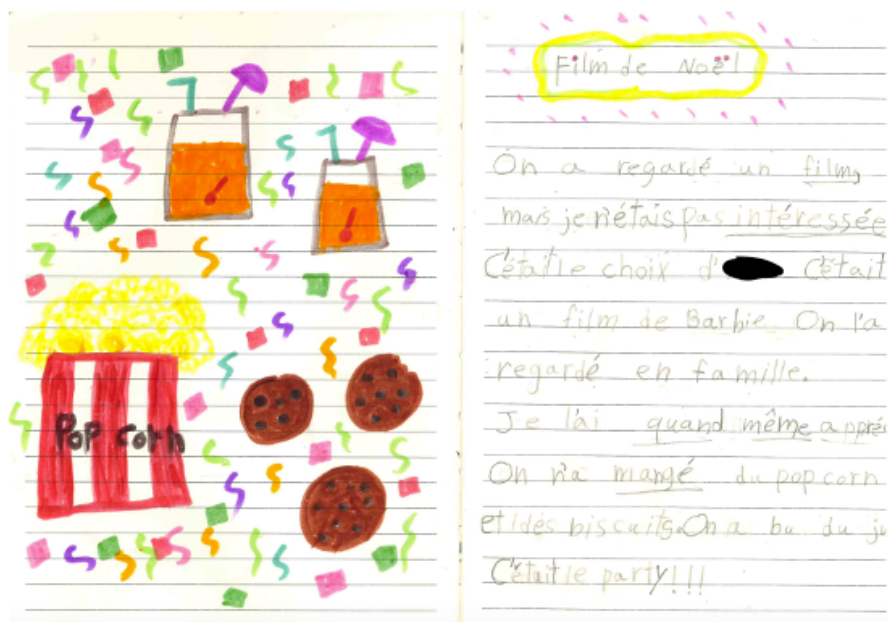 Pop corn
Film de Noël
On a regardé un film,
mais je n'étais pas intéressée
C'était le choix d' C'était
un film de Barbie. On l'a
regardé en famille.
Je l'ai quand même appréi
On n'a mangé du popcorn
et des biscuits. On a bu du ju
C'était le party!!!